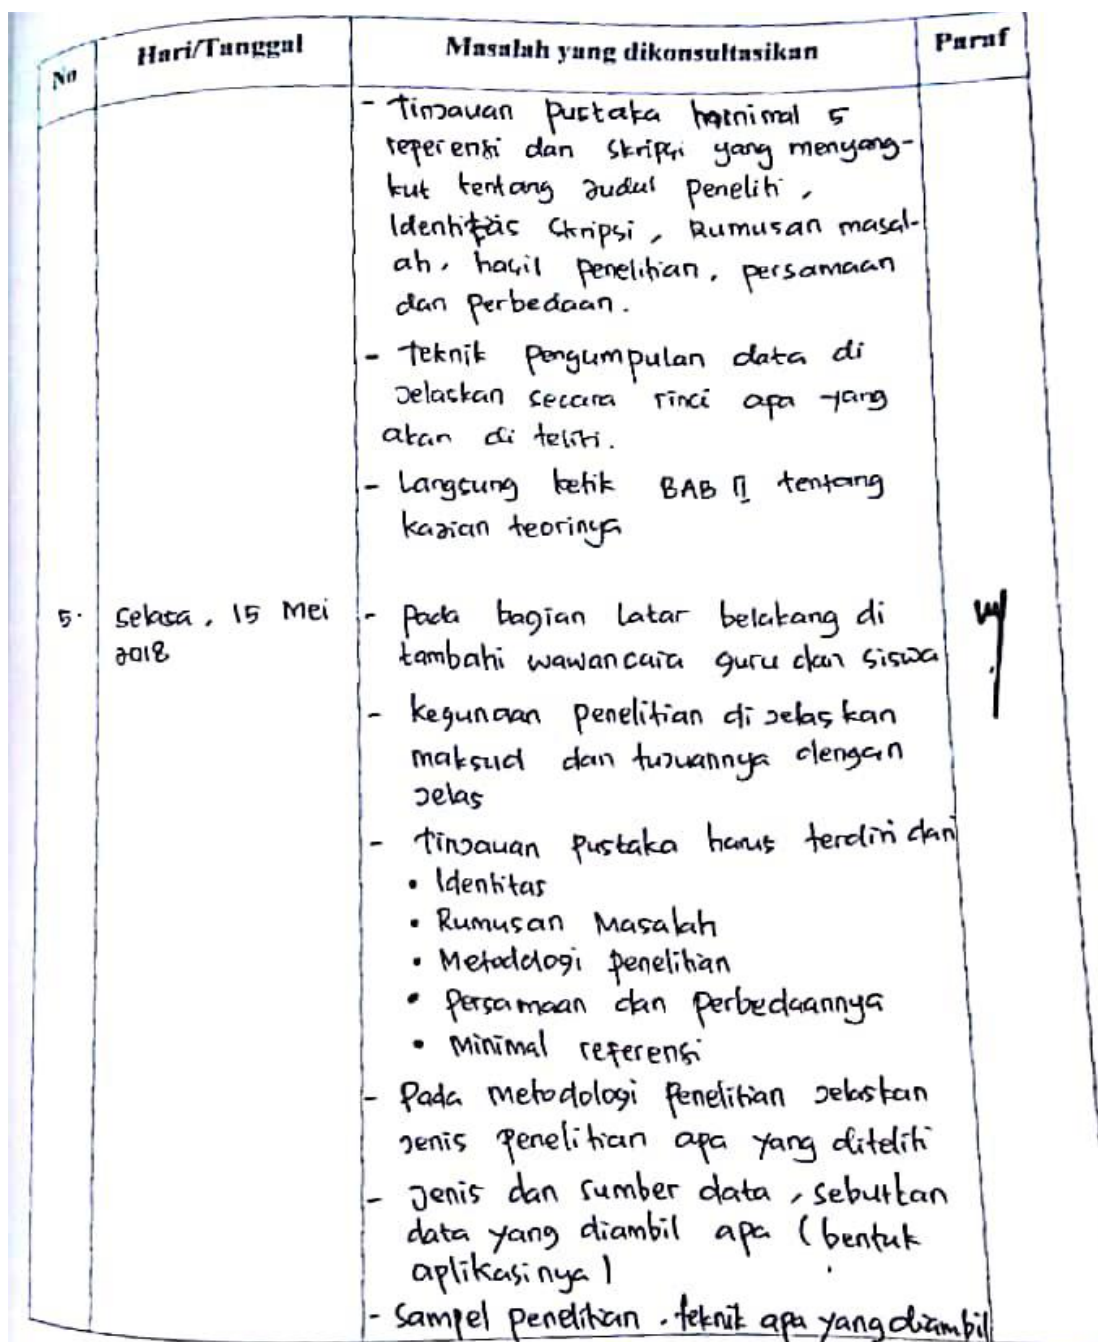 No Hari/Tanggal Masalah yang dikonsultasikan Paraf
- Tinjauan pustaka minimal 5
reperensi dan skripsi yang menyang-
kut tentang judul peneliti,
Identitas skripsi, Rumusan masal-
ah, hasil penelitian, persamaan
dan perbedaan.
- Teknik pengumpulan data di
jelaskan secara rinci apa yang
akan di teliti.
- Langsung ketik BAB II tentang
kajian teorinya
5. Selasa, 15 Mei - Pada bagian latar belakang di
2018 tambahi wawancara guru dan siswa
- kegunaan penelitian di jelaskan
maksud dan tujuannya dengan
jelas
- Tinjauan pustaka harus terdiri dari
• Identitas
• Rumusan Masalah
• Metodologi penelitian
• Persamaan dan perbedaannya
• Minimal referensi
- Pada metodologi penelitian jelaskan
jenis penelitian apa yang diteliti
- Jenis dan sumber data, sebutkan
data yang diambil apa (bentuk
aplikasinya)
- Sampel penelitian. teknik apa yang diambil